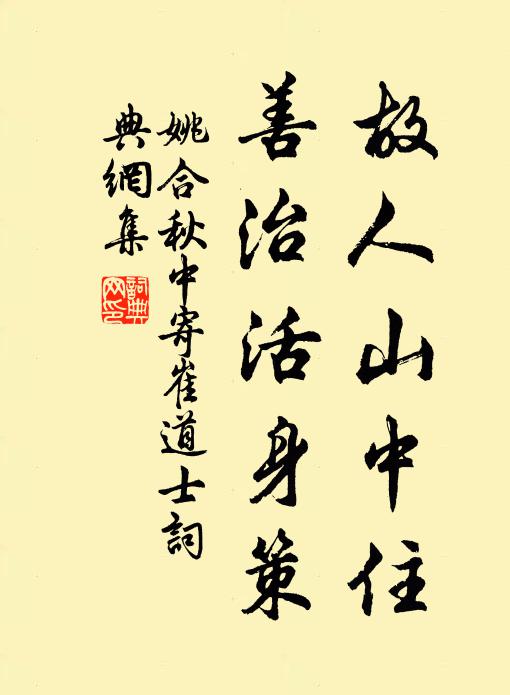 故人山中住
善治活身策
姚合秋中寄崔道士詞
典網集
詞典
网印